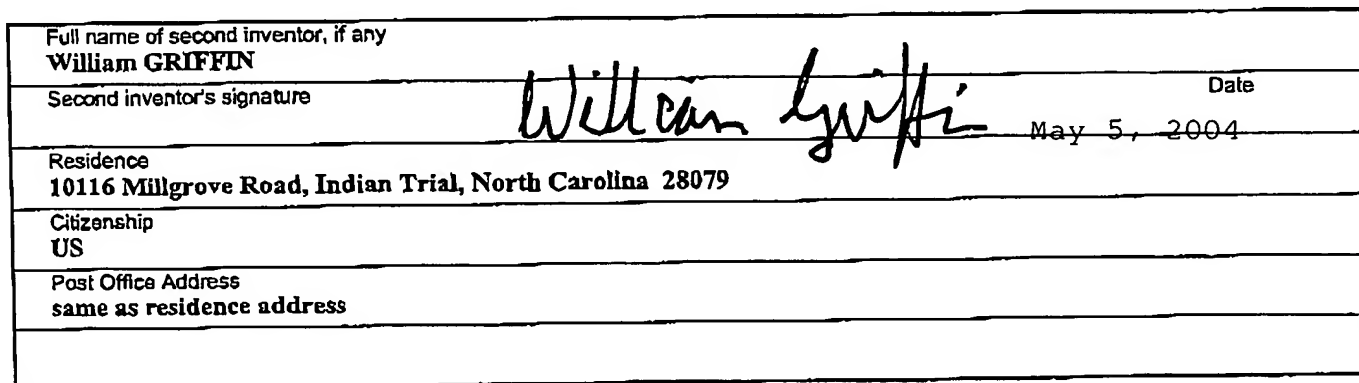 Full name of second inventor, if any
William GRIFFIN
Second inventor's signature William Griffin Date
May 5, 2004
Residence
10116 Millgrove Road, Indian Trial, North Carolina 28079
Citizenship
US
Post Office Address
same as residence address